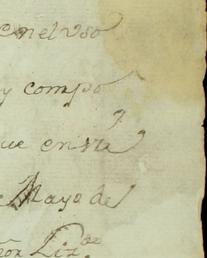 en el uso
y compo
que en sta
Mayo de
Liz.do